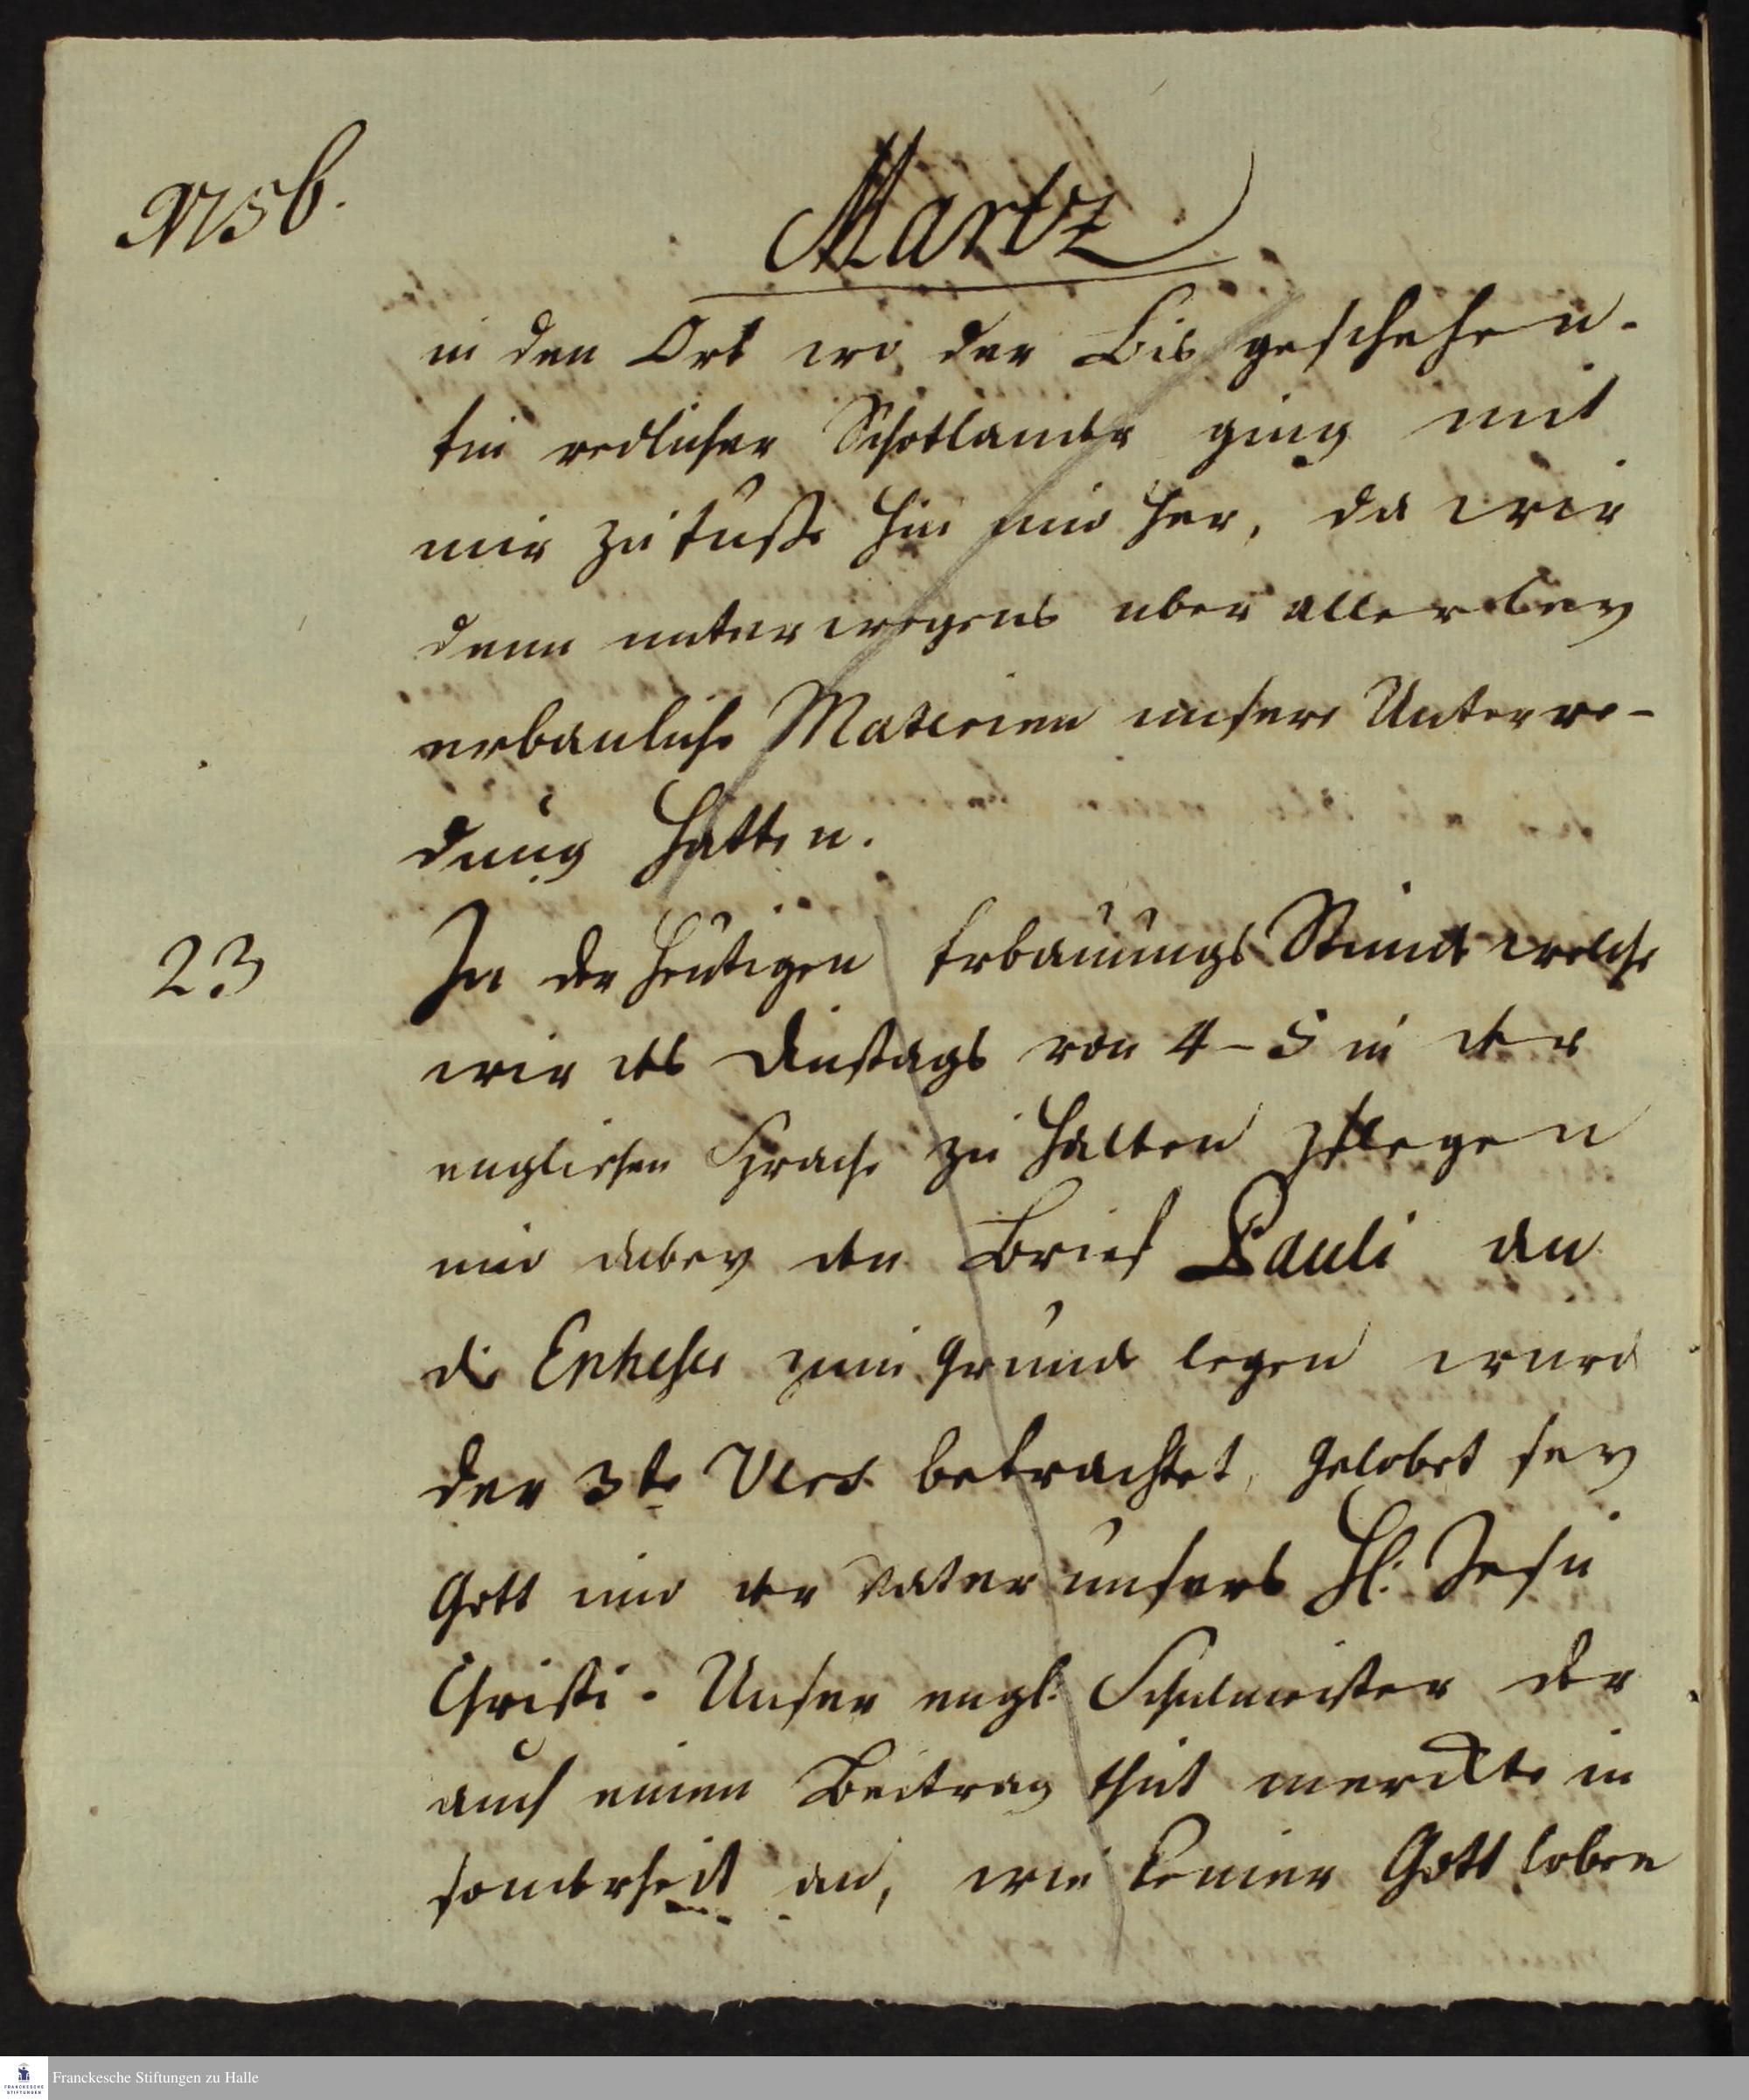 1756.
Martz
in den Ort wo der Bis geschehen.
Ein redlicher Schotlander ging mit
mir zu Fusse hin und her, da wir
denn unterwegens uber allerley
erbauliche Materien unsere Unterre-
dung hatten.
23 In der heutigen Erbauungs Stunde welche
wir des Dinstags von 4-5 in der
englischen Sprache zu halten pflegen
und dabey den Brief Pauli an
die Epheser zum Grunde legen wurd
der 3te Vers betrachtet, Gelobet sey
Gott und der Vater unsers H. Jesu
Christi. Unser engl. Schulmeister der
auch einen Beitrag thut merckte in
sonderheit an, wie keiner Gott loben
Franckesche Stiftungen zu Halle